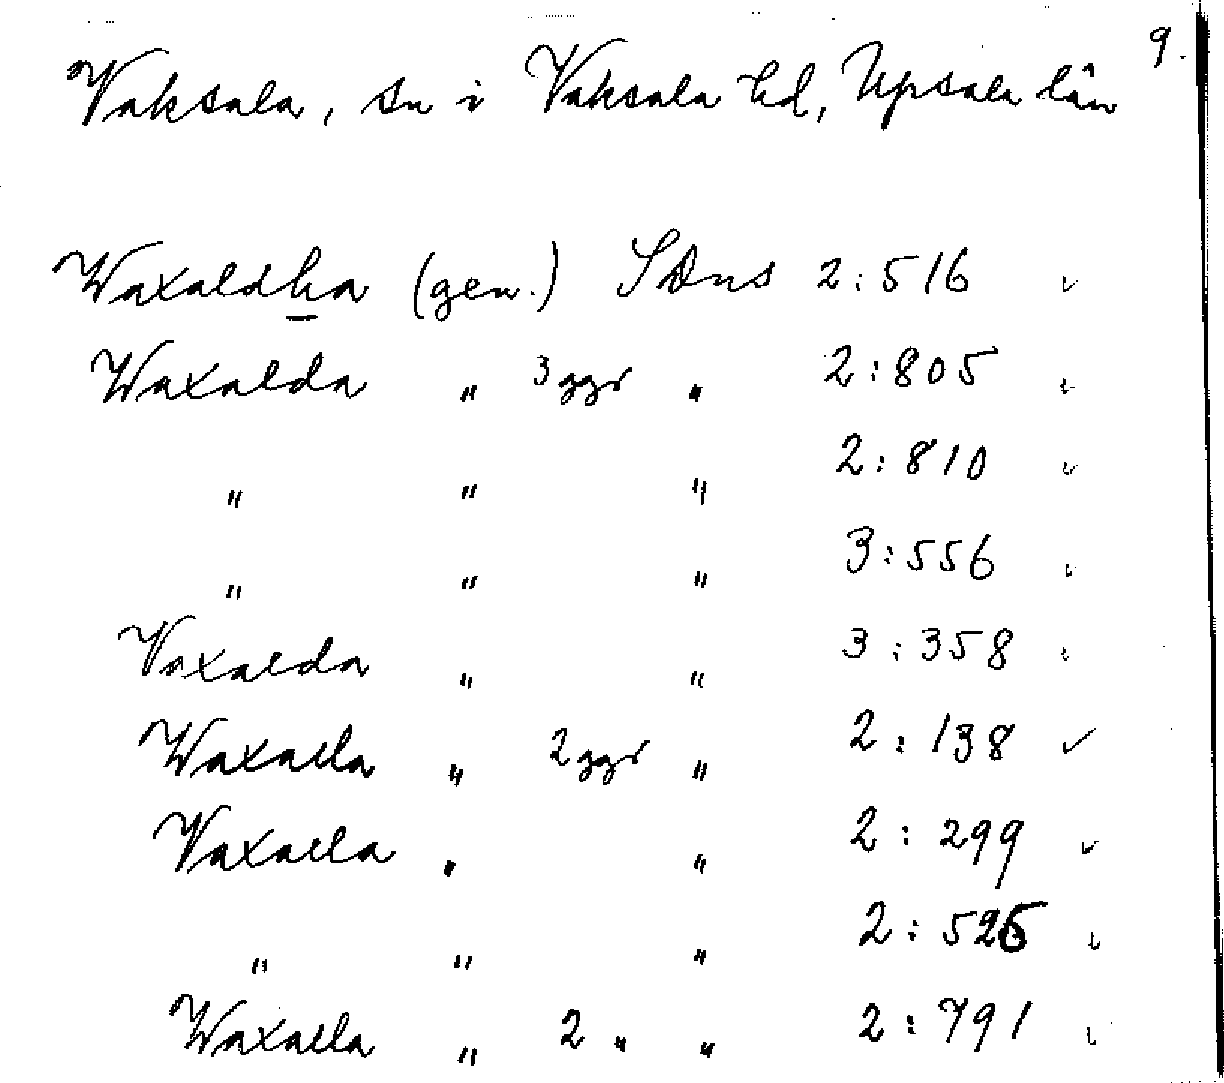 9.
Vaksala, sn i Vaksala hd, Upsala län
Waxaldha (gen.) SDns 2:516 ✓
Waxalda " 3 ggr " 2:805 ✓
" " " 2:810 ✓
" " " 3:556 ✓
Vaxalda " " 3:358 ✓
Waxalla " 2 ggr " 2:138 ✓
Vaxalla " " 2:299 ✓
" " " 2: ✓
Waxalla " 2 " " 2:791 ✓